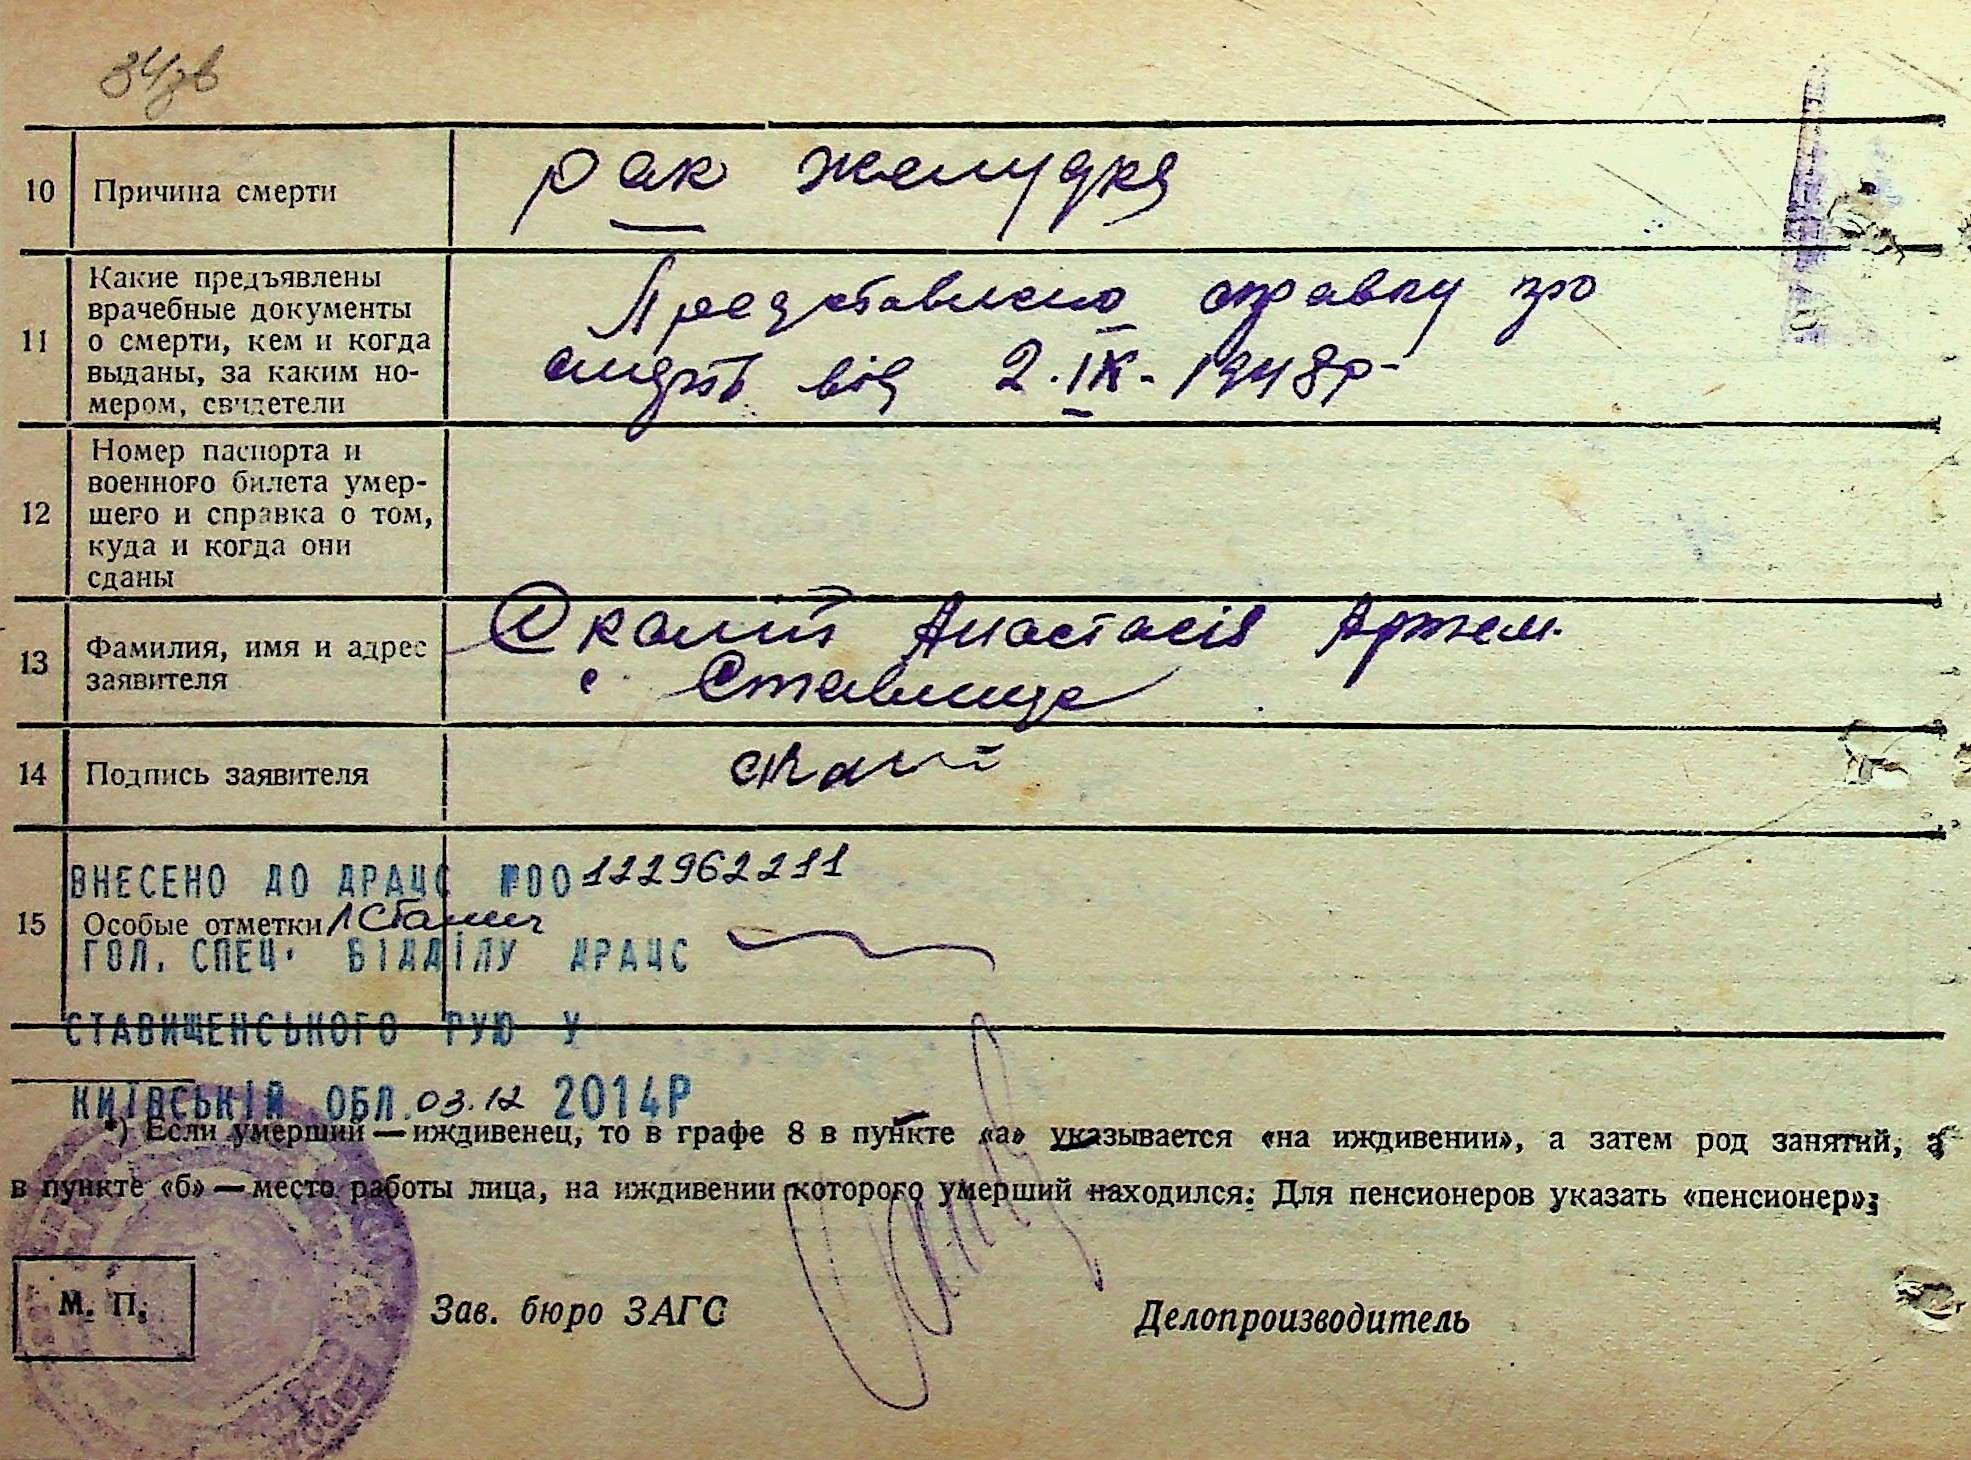 34зв
10 Причина смерти
рак желудка
11 Какие предъявлены
врачебные документы
о смерти, кем и когда
выданы, за каким но-
мером, свидетели
Представлено справку про
смерть від 2.IX-1948р-
12 Номер паспорта и
военного билета умер-
шего и справка о том,
куда и когда они
сданы
13 Фамилия, имя и адрес
заявителя
Анастасія Артем.
с. Ставище
14 Подпись заявителя
15 Особые отметки
ВНЕСЕНО ДО ДРАЦС №00122962211
ГОЛ. СПЕЦ. ВІДДІЛУ ДРАЦС
СТАВИЩЕНСЬКОГО РУЮ У
КИЇВСЬКІЙ ОБЛ. 03.12 2014Р
*) Если умерший — иждивенец, то в графе 8 в пункте «а» указывается «на иждивении», а затем род занятий, а
в пункте «б» — место работы лица, на иждивении которого умерший находился. Для пенсионеров указать «пенсионер».
М. П.
Зав. бюро ЗАГС
Делопроизводитель